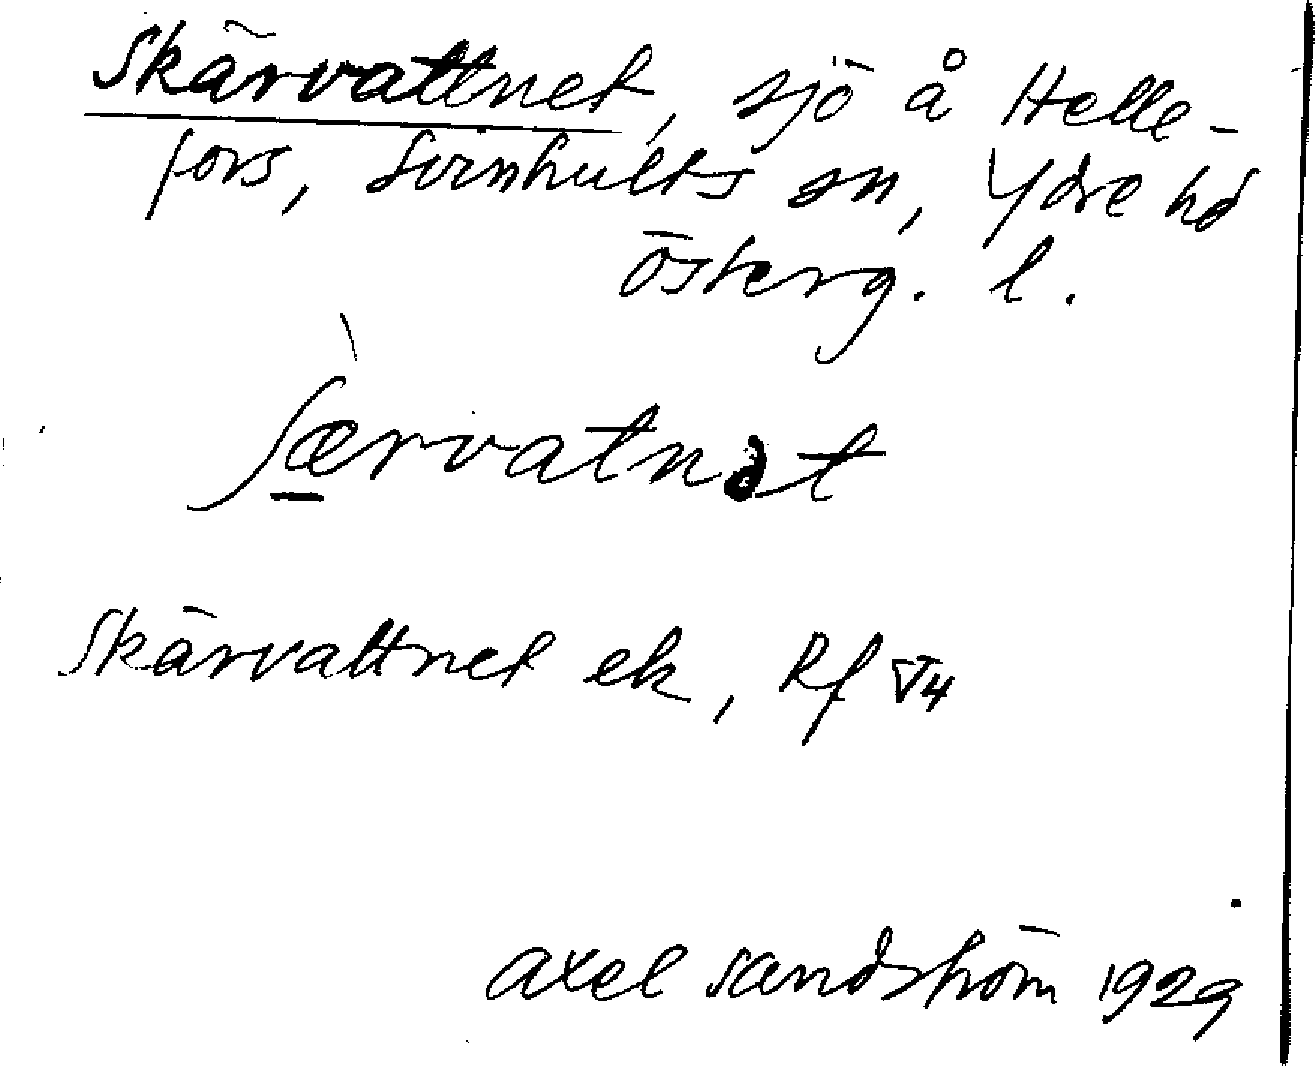 Skärvattnet, sjö å Helle-
fors, Svinhults sn, Ydre hd
Österg. l.
ʃærvatnət
Skärvattnet ek, Rf V4
Axel Sandström 1929